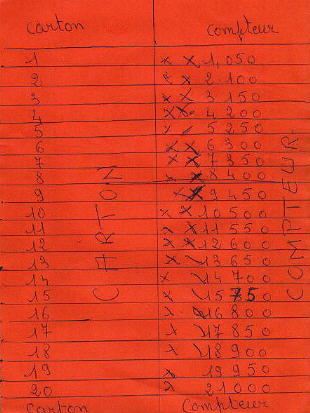 carton compteur
1 x x 1,050
2 x x 2.100
3 x x 3 150
4 x x 4 200
5 x x 5 250
6 x x 6 300
7 x x 7 350
8 x x 8 400
9 x x 9 450
10 x x 10 500
11 x x 11 550
12 x x 12 600
13 x x 13 650
14 x 14 700
15 x 15 750
16 x 16 800
17 x 17 850
18 x 18 900
19 x 19 950
20 x 21000
carton compteur
CARTON
COMPTEUR